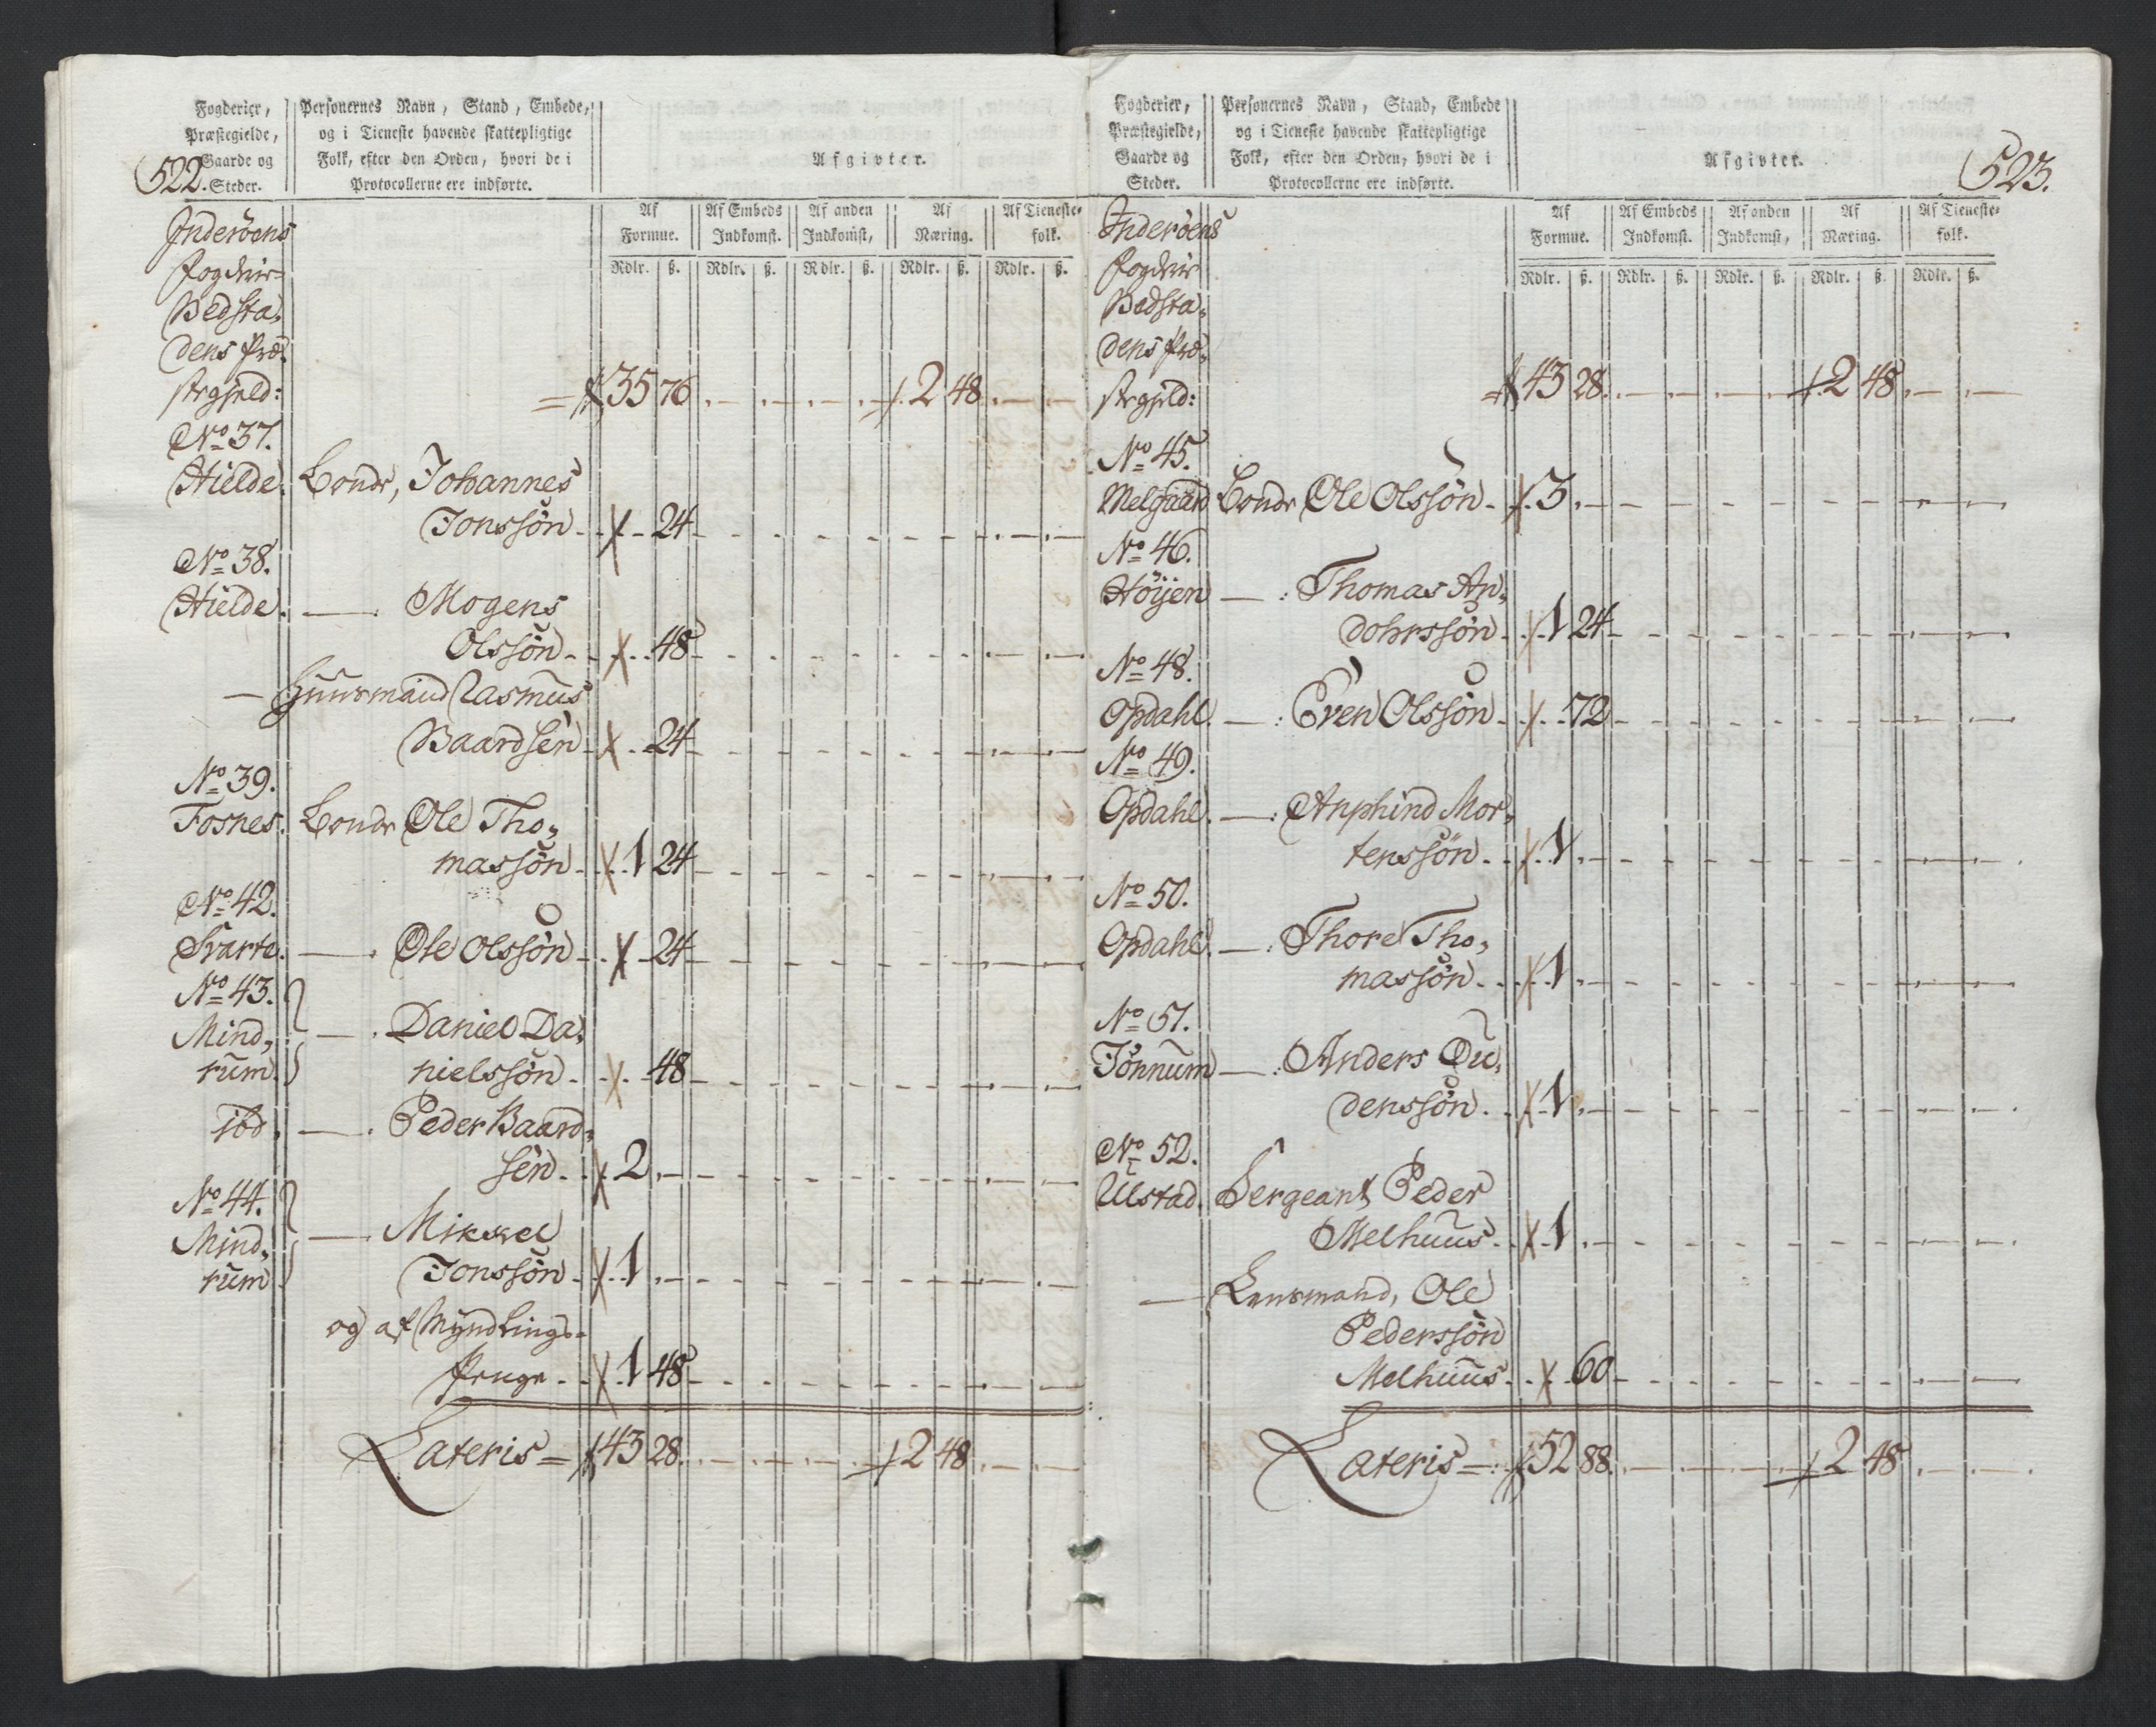 522.
Fogderier, Præstegielde, Gaarde og Steder.
Personernes Navn, Stand, Embede, og i Tieneste havende skattepligtige Folk, efter den Orden, hvori de i Protocollerne ere indførte.
Afgivter.
Af Formue. Af Embeds Indkomst. Af anden Indkomst, Af Næring. Af Tieneste-folk.
Rdlr. ß. Rdlr. ß. Rdlr. ß. Rdlr. ß. Rdlr. ß.
Inderöens
Fogderie
Bedsta,
dens Præ,
stegjeld: 35 76 2 48
No 37.
Hielde. Bonde, Johannes
Jonssön 24
No 38.
Hielde. — Mogens
Olssön 48
— Huusmand Rasmus
Baardsen 24
No 39.
Fosnes. Bonde Ole Tho,
massön 1 24
No 42.
Svarte. — Ole Olssön 24
No 43.
Mind, — Daniel Da,
rum nielssön 48
ibd. — Peder Baard,
sen 2
No 44.
Mind, — Mikkel
rum Jonssön 1
og af Myndlings-
Penge 1 48
Lateris = 43 28 2 48
523.
Fogderier, Præstegielde, Gaarde og Steder.
Personernes Navn, Stand, Embede og i Tieneste havende skattepligtige Folk, efter den Orden, hvori de i Protocollerne ere indførte.
Afgivter.
Af Formue. Af Embeds Indkomst. Af anden Indkomst, Af Næring. Af Tieneste-folk.
Rdlr. ß. Rdlr. ß. Rdlr. ß. Rdlr. ß. Rdlr. ß.
Inderöens
Fogderie
Bedsta,
dens Præ,
stegjeld: 43 28 2 48
No 45.
Melgaard Bonde Ole Olssön 3
No 46.
Höijen — : Thomas An,
dohrssön 1 24
No 48.
Opdahl. — : Even Olssön 72
No 49.
Opdahl. — : Anphind Mor,
tenssön 1
No 50.
Opdahl. — : Thore Tho,
massön 1
No 51.
Tönnum — : Anders Ou,
denssön 1
No 52.
Ulstad. Sergeant Peder
Melhuus 1
— Lensmand, Ole
Pederssön
Melhuus 60
Lateris = 52 88 2 48